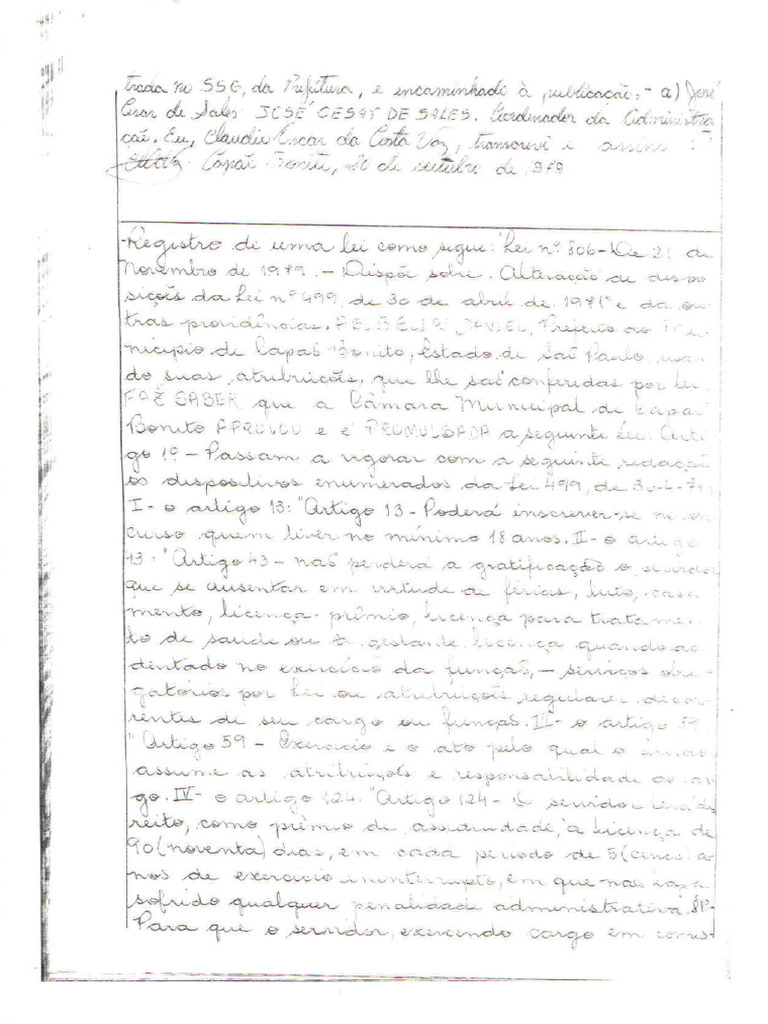 trada no SSG, da Prefeitura, e encaminhado à publicação. - a) José
Cesar de Sales JOSÉ CESAR DE SALES. Coordenador da Administra
ção. Eu, Claudio Oscar da Costa Vaz, transcrevi e assino:
Capão Bonito, de outubro de 1979
Registro de uma lei como segue: Lei nº 806 - De 21 de
Novembro de 1979. - Dispõe sobre. Alteração de dispo
sições da Lei nº 499, de 30 de abril de 1971 e da ou
tras providências. Prefeito do Mu
nicipio de Capão Bonito, Estado de São Paulo, usan
do suas atribuicões, que lhe são conferidas por lei,
FAZ SABER que a Câmara Municipal de Capão
Bonito APROVOU e é PROMULGADA a seguinte Lei: Arti
go 1º - Passam a vigorar com a seguinte redação
os dispositivos enumerados da Lei 499, de 30-4-71:
I - o artigo 13: "Artigo 13 - Poderá inscrever-se no con
curso quem tiver no mínimo 18 anos. II - o artigo
43: "Artigo 43 - não perderá a gratificação o servidor
que se ausentar em virtude de férias, luto, casa
mento, licença-prêmio, licença para tratamen
to de saúde ou à gestante, licença quando aci
dentado no exercício da função, - serviços obri
gatórios por lei ou atribuições regulares decor
rentes de seu cargo ou função. III - o artigo 59:
"Artigo 59 - Exercício é o ato pelo qual o servidor
assume as atribuições e responsabilidade do car
go. IV - o artigo 124: "Artigo 124 - O servidor terá di
reito, como prêmio de assiduidade, à licença de
90 (noventa) dias, em cada período de 5 (cinco) a
nos de exercício ininterrupto, em que não haja
sofrido qualquer penalidade administrativa. §1º-
Para que o servidor, exercendo cargo em comis-